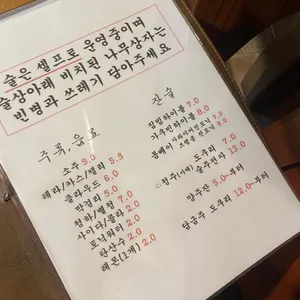 술은 셀프로 운영중이며
술상아래 비치된 나무상자는
빈병과 쓰레기 담아주세요
주류, 음료
소주 5.0
테라/카스/켈리 5.5
클라우드 6.0
막걸리 5.0
청하/별청 7.0
사이다/콜라 2.0
토닉워터 2.0
탄산수 2.0
레몬(1개) 2.0
잔술
짐빔하이볼 7.0
가쿠빈하이볼 8.0
봄베이
도쿠리 7.0
술주전자 13.0
양주잔 5.0~부터
담금주 도쿠리 12.0~부터